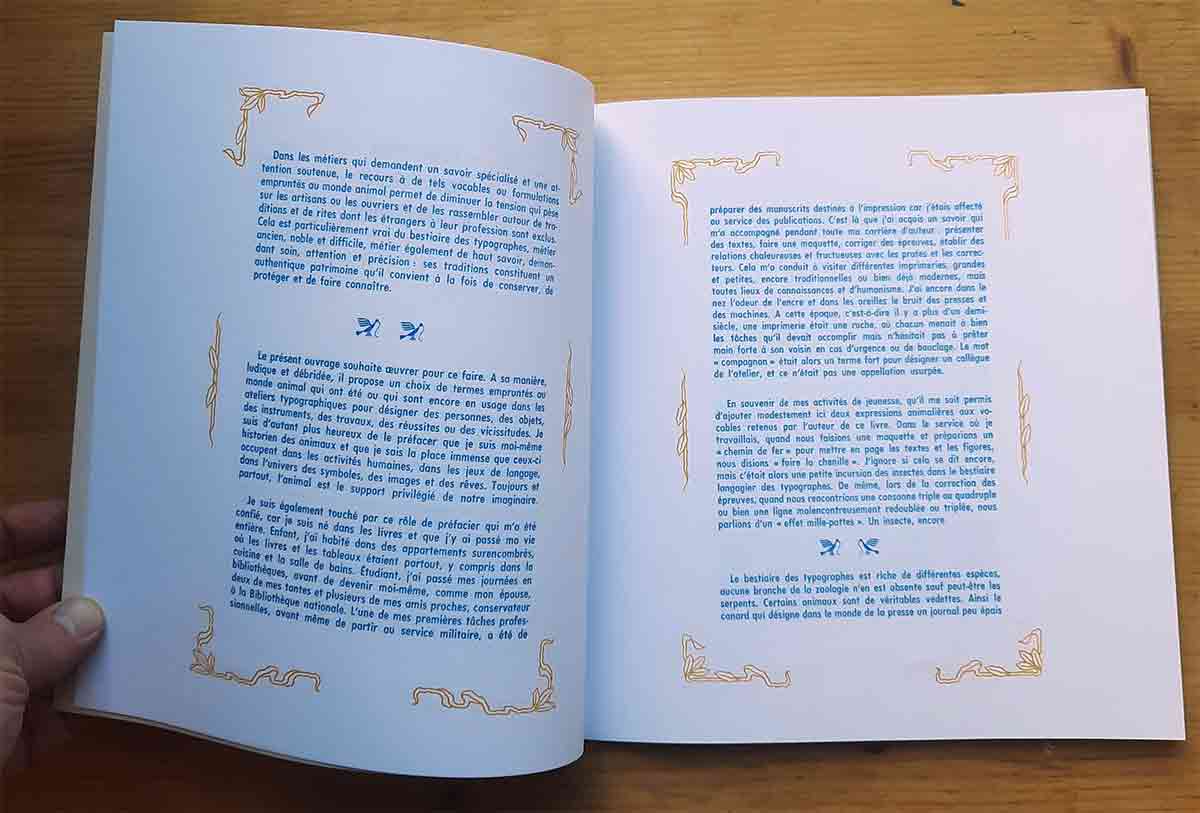 Dans les métiers qui demandent un savoir spécialisé et une at-
tention soutenue, le recours à de tels vocables ou formulations
empruntés au monde animal permet de diminuer la tension qui pèse
sur les artisans ou les ouvriers et de les rassembler autour de tra-
ditions et de rites dont les étrangers à leur profession sont exclus.
Cela est particulièrement vrai du bestiaire des typographes, métier
ancien, noble et difficile, métier également de haut savoir, deman-
dant soin, attention et précision : ses traditions constituent un
authentique patrimoine qu'il convient à la fois de conserver, de
protéger et de faire connaître.
Le présent ouvrage souhaite œuvrer pour ce faire. A sa manière,
ludique et débridée, il propose un choix de termes empruntés au
monde animal qui ont été ou qui sont encore en usage dans les
ateliers typographiques pour désigner des personnes, des objets,
des instruments, des travaux, des réussites ou des vicissitudes. Je
suis d'autant plus heureux de le préfacer que je suis moi-même
historien des animaux et que je sais la place immense que ceux-ci
occupent dans les activités humaines, dans les jeux de langage,
dans l'univers des symboles, des images et des rêves. Toujours et
partout, l'animal est le support privilégié de notre imaginaire.
Je suis également touché par ce rôle de préfacier qui m'a été
confié, car je suis né dans les livres et que j'y ai passé ma vie
entière. Enfant, j'ai habité dans des appartements surencombrés,
où les livres et les tableaux étaient partout, y compris dans la
cuisine et la salle de bains. Étudiant, j'ai passé mes journées en
bibliothèques, avant de devenir moi-même, comme mon épouse,
deux de mes tantes et plusieurs de mes amis proches, conservateur
à la Bibliothèque nationale. L'une de mes premières tâches profes-
sionnelles, avant même de partir au service militaire, a été de
préparer des manuscrits destinés à l'impression car j'étais affecté
au service des publications. C'est là que j'ai acquis un savoir qui
m'a accompagné pendant toute ma carrière d'auteur : présenter
des textes, faire une maquette, corriger des épreuves, établir des
relations chaleureuses et fructueuses avec les protes et les correc-
teurs. Cela m'a conduit à visiter différentes imprimeries, grandes
et petites, encore traditionnelles ou bien déjà modernes, mais
toutes lieux de connaissances et d'humanisme. J'ai encore dans le
nez l'odeur de l'encre et dans les oreilles le bruit des presses et
des machines. A cette époque, c'est-à-dire il y a plus d'un demi-
siècle, une imprimerie était une ruche, où chacun menait à bien
les tâches qu'il devait accomplir mais n'hésitait pas à prêter
main forte à son voisin en cas d'urgence ou de bouclage. Le mot
« compagnon » était alors un terme fort pour désigner un collègue
de l'atelier, et ce n'était pas une appellation usurpée.
En souvenir de mes activités de jeunesse, qu'il me soit permis
d'ajouter modestement ici deux expressions animalières aux vo-
cables retenus par l'auteur de ce livre. Dans le service où je
travaillais, quand nous faisions une maquette et préparions un
« chemin de fer » pour mettre en page les textes et les figures,
nous disions « faire la chenille ». J'ignore si cela se dit encore,
mais c'était alors une petite incursion des insectes dans le bestiaire
langagier des typographes. De même, lors de la correction des
épreuves, quand nous rencontrions une consonne triple ou quadruple
ou bien une ligne malencontreusement redoublée ou triplée, nous
parlions d'un « effet mille-pattes ». Un insecte, encore
Le bestiaire des typographes est riche de différentes espèces,
aucune branche de la zoologie n'en est absente sauf peut-être les
serpents. Certains animaux sont de véritables vedettes. Ainsi le
canard qui désigne dans le monde de la presse un journal peu épais